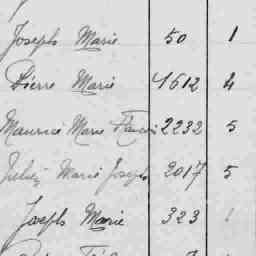 Joseph Marie 50 1
Pierre Marie 4612 4
Maurice Marie Francois 2232 5
Julien Marie Joseph 2017 5
Joseph Marie 323 1